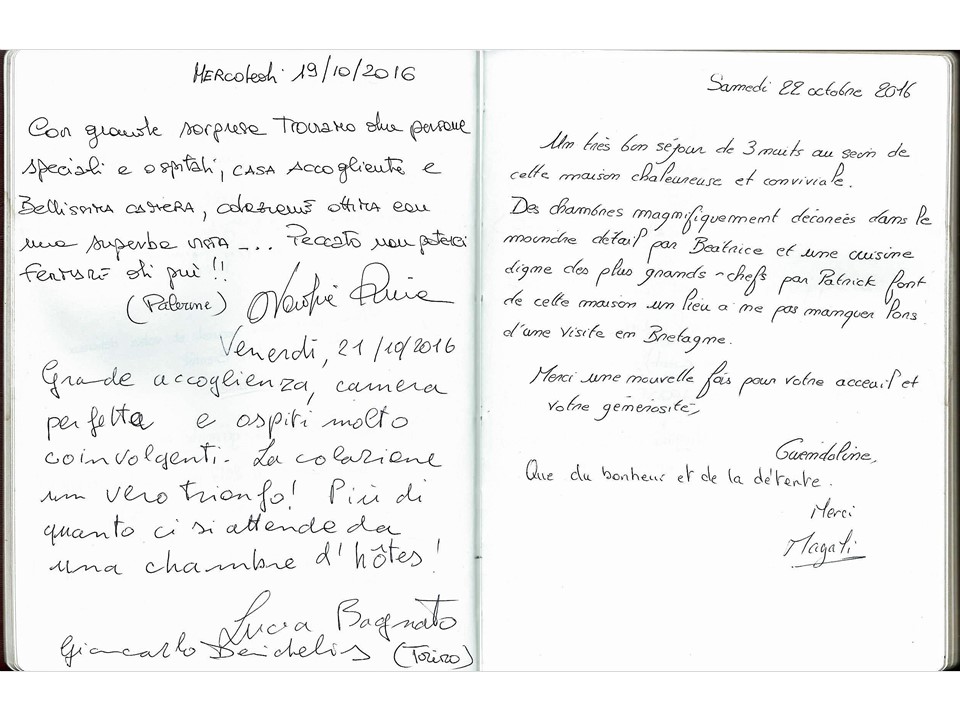 Mercoledì 19/10/2016
Con grande sorpresa troviamo due persone
speciali e ospitali, casa accogliente e
Bellissima camera, colazione ottima con
una superba vista .... Peccato non poterci
fermare di più !!
(Palermo)
Venerdì, 21/10/2016
Grande accoglienza, camera
perfetta e ospiti molto
coinvolgenti. La colazione
un vero trionfo! Più di
quanto ci si attende da
una chambre d'hôtes!
Lucia Bagnato
Giancarlo (Torino)
Samedi 22 octobre 2016
Un très bon séjour de 3 nuits au sein de
cette maison chaleureuse et conviviale.
Des chambres magnifiquement décorées dans le
moindre détail par Béatrice et une cuisine
digne des plus grands chefs par Patrick font
de cette maison un lieu a ne pas manquer lors
d'une visite en Bretagne.
Merci une nouvelle fois pour votre acceuil et
votre générosité,
Gwendoline,
Que du bonheur et de la détente.
Merci
Magali